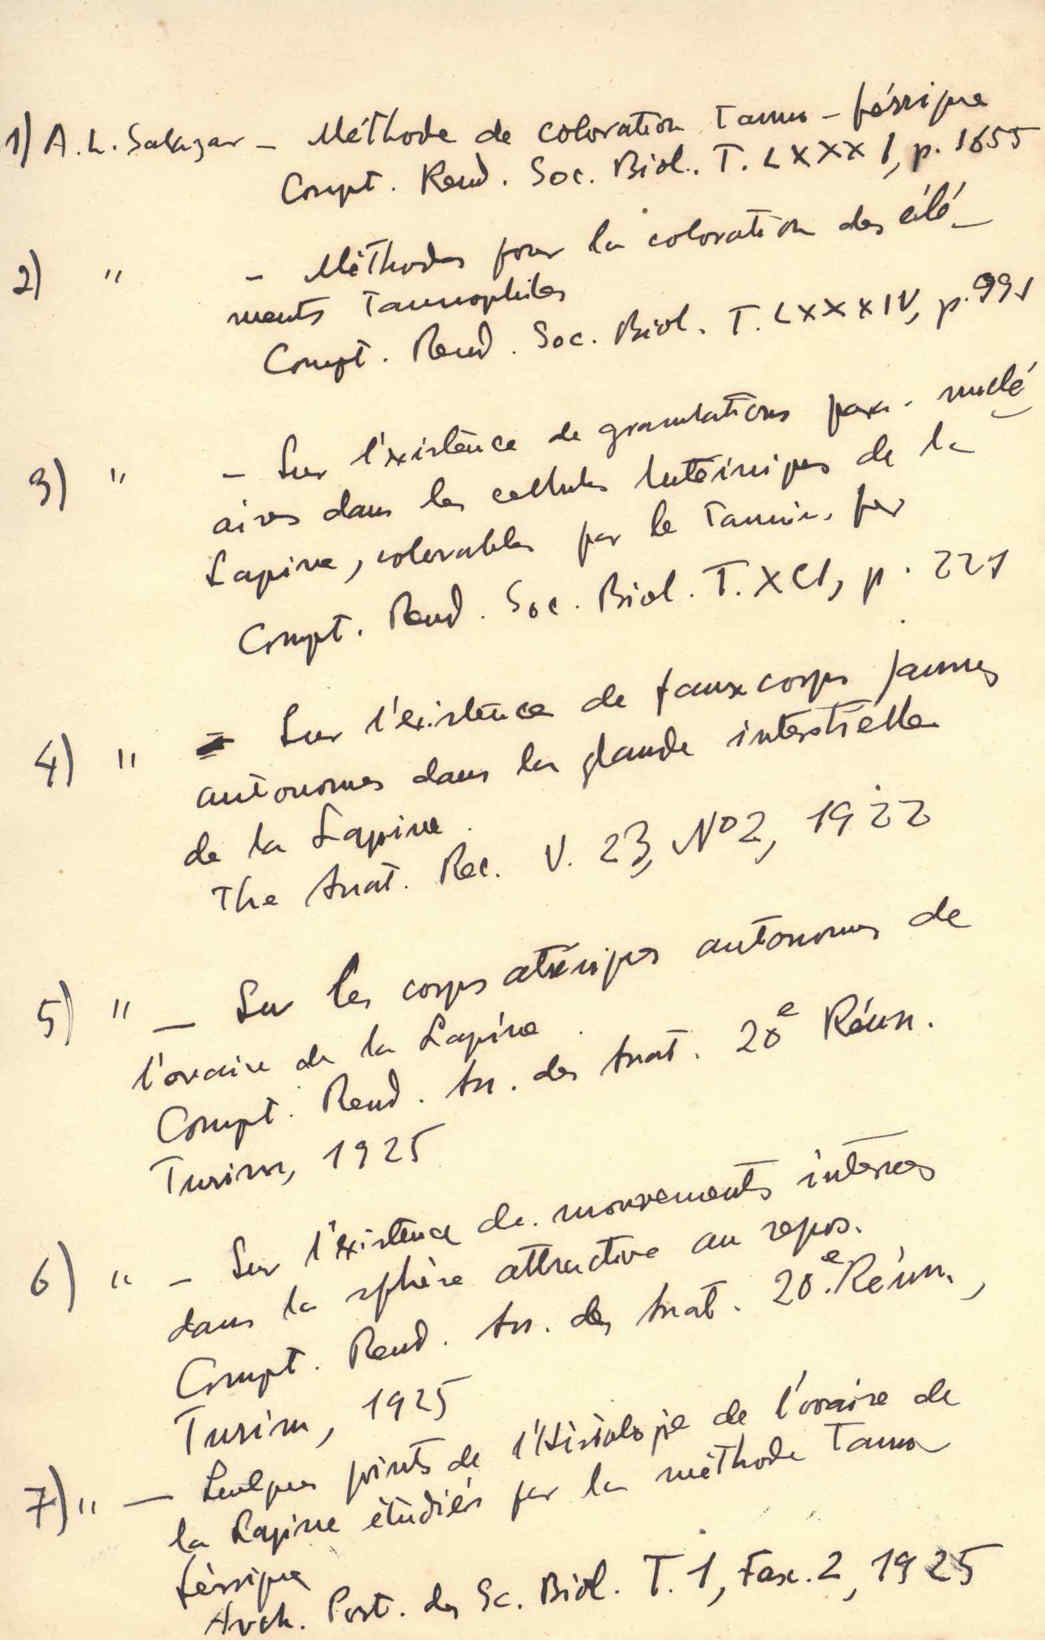 1) A. L. Salazar – Méthode de coloration Tanno-férrique
Compt. Rend. Soc. Biol. T. LXXXI, p. 1655
2) " – Méthodes pour la coloration des élé-
ments Tannophiles
Compt. Rend. Soc. Biol. T. LXXXIV, p. 991
3) " – Sur l'existence de granulations para-nuclé
aires dans les cellules lutéiniques de la
Lapine, colorables par le Tannin-fer
Compt. Rend. Soc. Biol. T. XCI, p. 221
4) " – Sur l'existence de faux corps jaunes
autonomes dans la glande interstitielle
de la Lapine.
The Anat. Rec. V. 23, Nº2, 1922
5) " – Sur les corps atrésiques autonomes de
l'ovaire de la Lapine.
Compt. Rend. As. des Anat. 20e Réun.
Turim, 1925
6) " – Sur l'existence de mouvements internes
dans la sphère attractive au repos.
Compt. Rend. As. des Anat. 20e Réun.,
Turim, 1925
7) " – Quelques points de l'Histologie de l'ovaire de
la Lapine étudiés par la méthode Tanno
férrique
Arch. Port. des Sc. Biol. T. 1, Fasc. 2, 1925